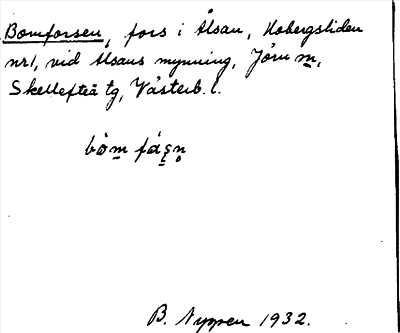 Bomforsen, fors i Ålsån, Hobergsliden
nr1, vid Ålsåns mynning, Jörn m,
Skellefteå tg, Västerb. l.
bòm fás̠n̥
B. Nyppen 1932.